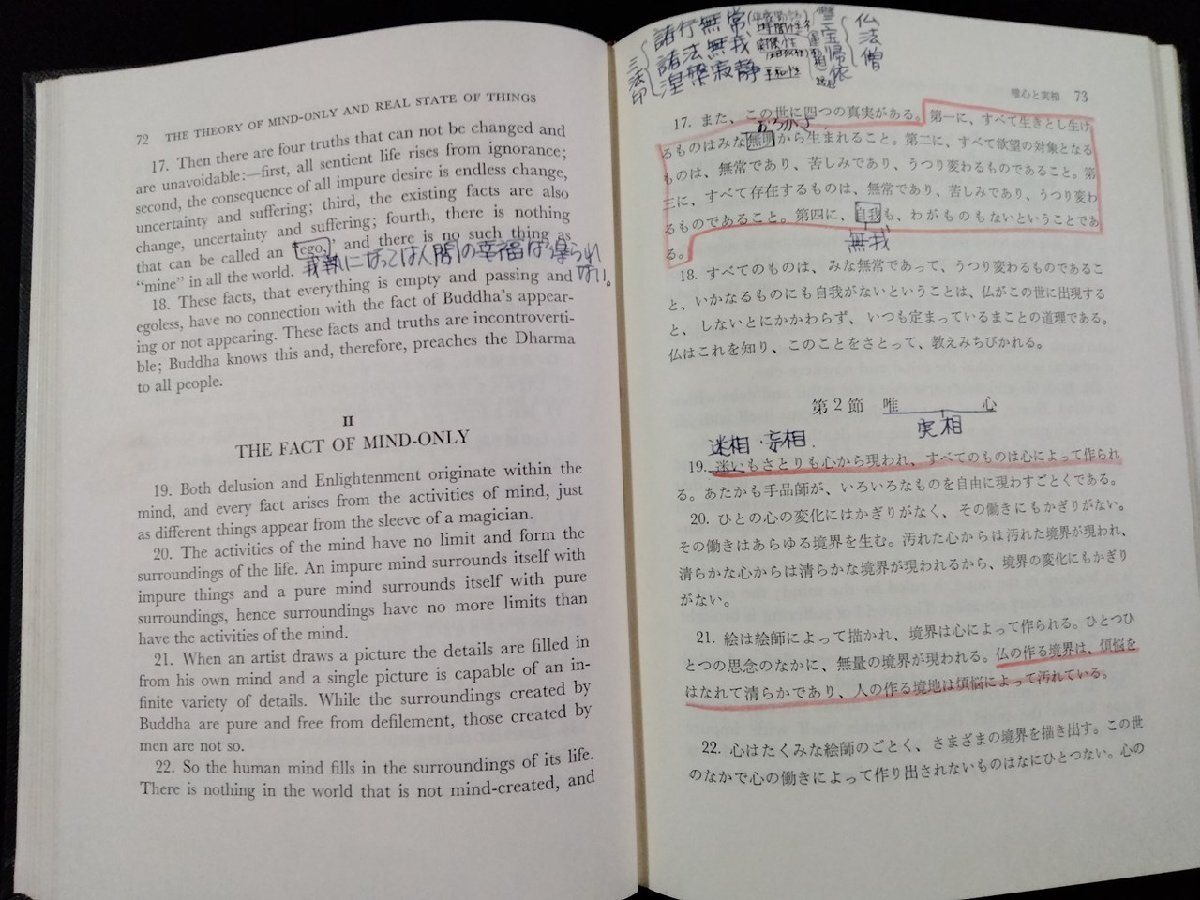 72 THE THEORY OF MIND-ONLY AND REAL STATE OF THINGS
17. Then there are four truths that can not be changed and
are unavoidable:—first, all sentient life rises from ignorance;
second, the consequence of all impure desire is endless change,
uncertainty and suffering; third, the existing facts are also
change, uncertainty and suffering; fourth, there is nothing
that can be called an "ego," and there is no such thing as
"mine" in all the world.
我執になっては人間の幸福は得られ
ない。
18. These facts, that everything is empty and passing and
egoless, have no connection with the fact of Buddha's appear-
ing or not appearing. These facts and truths are incontroverti-
ble; Buddha knows this and, therefore, preaches the Dharma
to all people.
II
THE FACT OF MIND-ONLY
19. Both delusion and Enlightenment originate within the
mind, and every fact arises from the activities of mind, just
as different things appear from the sleeve of a magician.
20. The activities of the mind have no limit and form the
surroundings of the life. An impure mind surrounds itself with
impure things and a pure mind surrounds itself with pure
surroundings, hence surroundings have no more limits than
have the activities of the mind.
21. When an artist draws a picture the details are filled in
from his own mind and a single picture is capable of an in-
finite variety of details. While the surroundings created by
Buddha are pure and free from defilement, those created by
men are not so.
22. So the human mind fills in the surroundings of its life.
There is nothing in the world that is not mind-created, and
三法印
諸行無常
諸法無我
涅槃寂静
三宝帰依
仏法僧
唯心と実相 73
17. また、この世に四つの真実がある。第一に、すべて生きとし生け
るものはみな無明から生まれること。第二に、すべて欲望の対象となる
ものは、無常であり、苦しみであり、うつり変わるものであること。第
三に、すべて存在するものは、無常であり、苦しみであり、うつり変わ
るものであること。第四に、自我も、わがものもないということであ
る。
無我
18. すべてのものは、みな無常であって、うつり変わるものであるこ
と、いかなるものにも自我がないということは、仏がこの世に出現する
と、しないとにかかわらず、いつも定まっているまことの道理である。
仏はこれを知り、このことをさとって、教えみちびかれる。
第2節 唯 心
実相
迷相・妄相.
19. 迷いもさとりも心から現われ、すべてのものは心によって作られ
る。あたかも手品師が、いろいろなものを自由に現わすごとくである。
20. ひとの心の変化にはかぎりがなく、その働きにもかぎりがない。
その働きはあらゆる境界を生む。汚れた心からは汚れた境界が現われ、
清らかな心からは清らかな境界が現われるから、境界の変化にもかぎり
がない。
21. 絵は絵師によって描かれ、境界は心によって作られる。ひとつひ
とつの思念のなかに、無量の境界が現われる。仏の作る境界は、煩悩を
はなれて清らかであり、人の作る境地は煩悩によって汚れている。
22. 心はたくみな絵師のごとく、さまざまの境界を描き出す。この世
のなかで心の働きによって作り出されないものはなにひとつない。心の